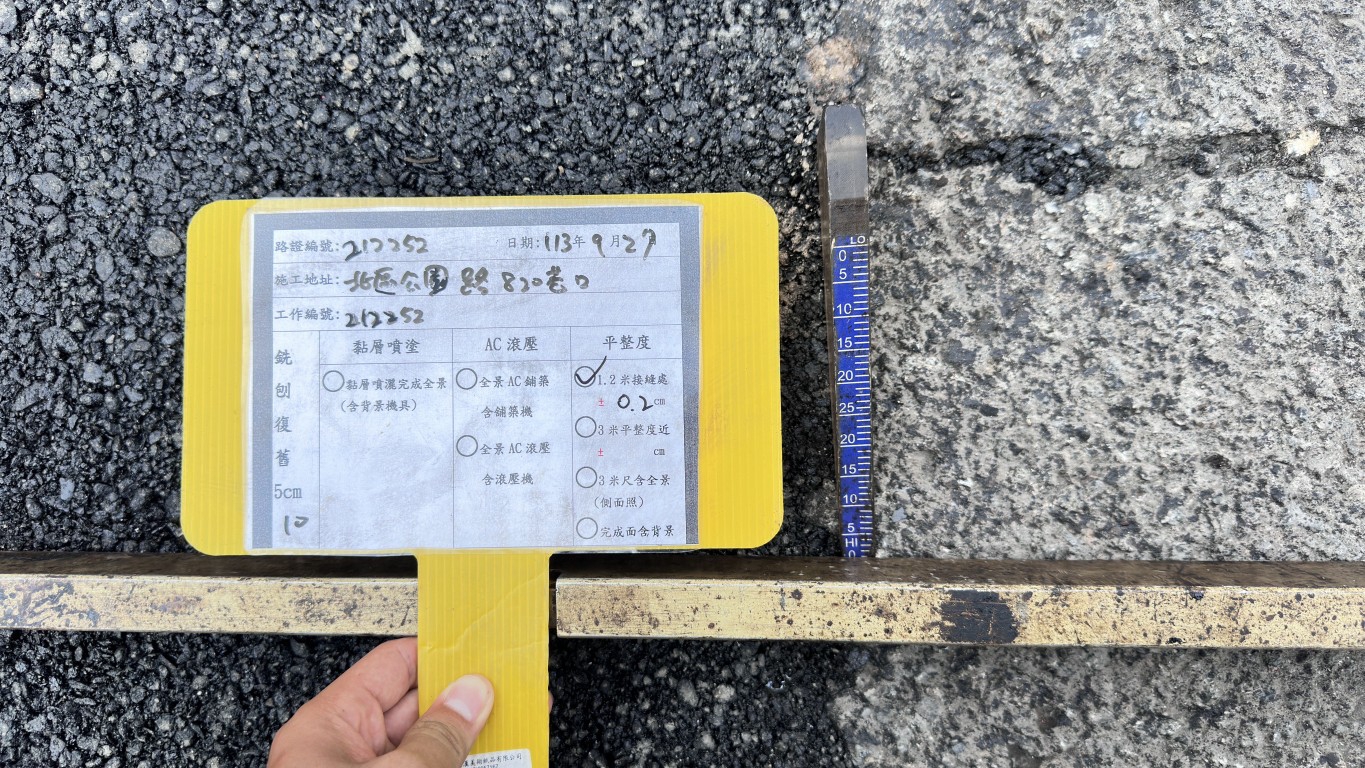 路證編號: 212252 日期: 113年 9月27日
施工地址: 北區公園路 820巷口
工作編號: 212252
銑刨復舊 5cm
10
黏層噴塗
黏層噴灑完成全景
(含背景機具)
AC 滾壓
全景 AC 鋪築
含鋪築機
全景 AC 滾壓
含滾壓機
平整度
1.2 米接縫處
± 0.2 cm
3 米平整度近
± cm
3 米尺含全景
(側面照)
完成面含背景
LO
0
5
10
15
20
25
20
15
10
5
HI
0